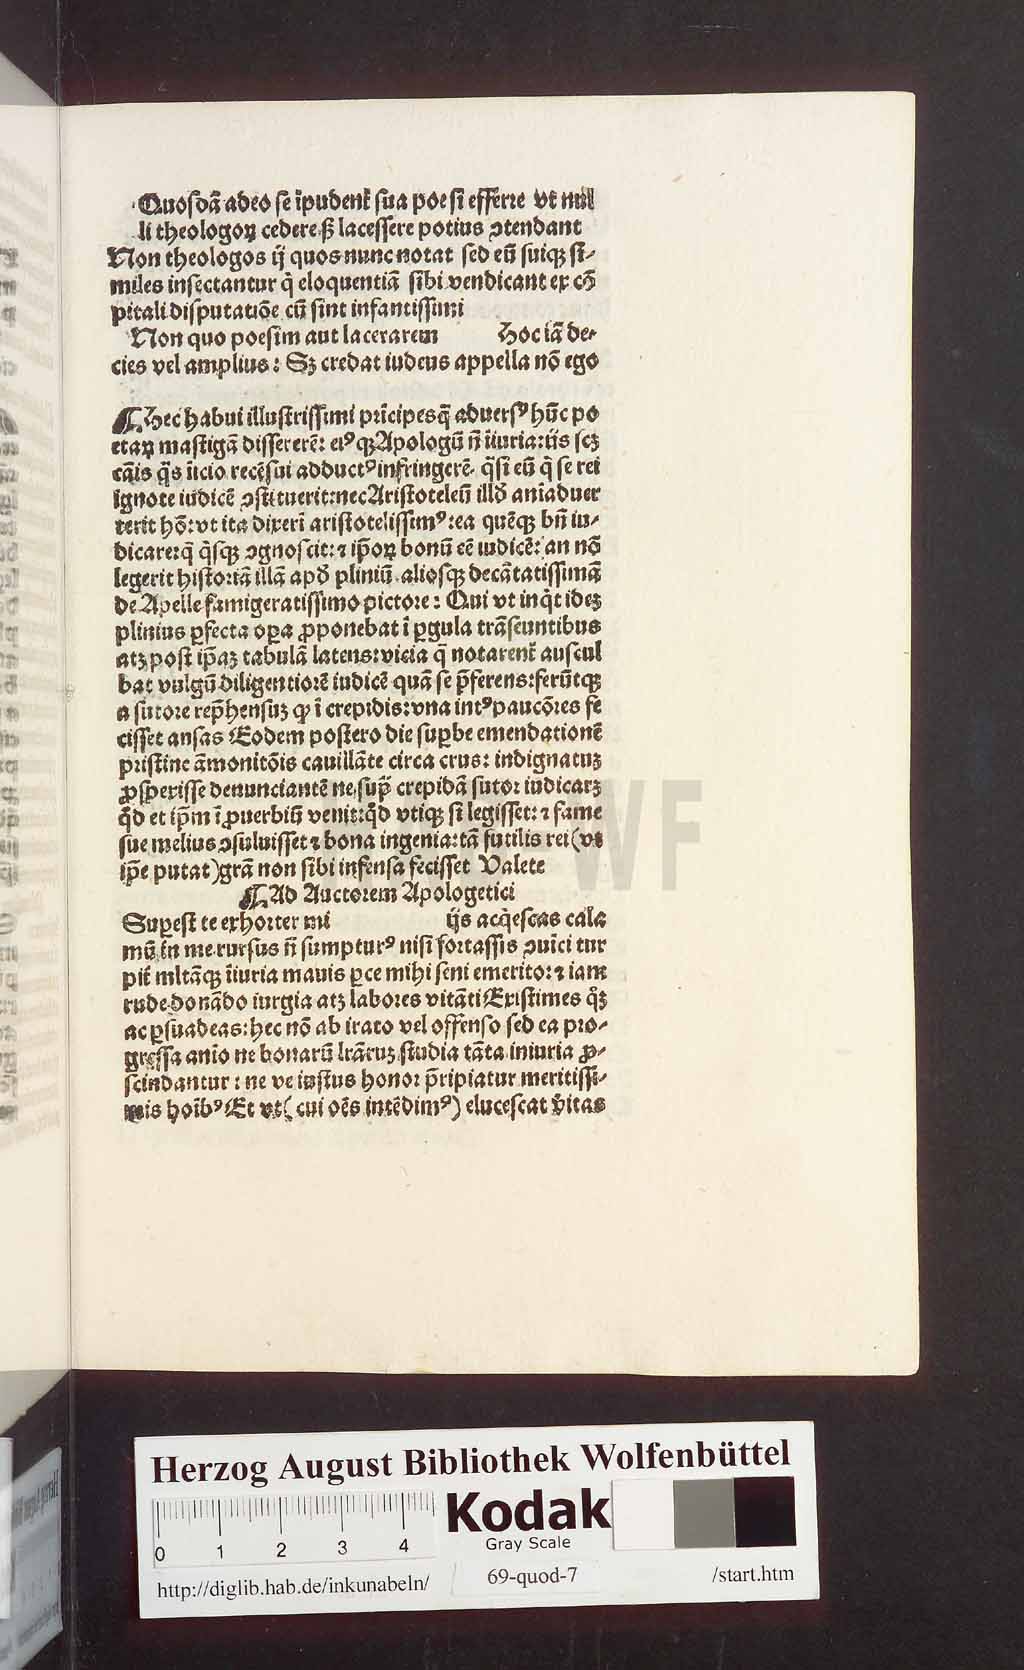 Quosdã adeo se ĩpudent᷑ sua poesi efferre vt nul
li theologoꝝ cedere ß lacessere potius ꝯtendant
Non theologos ij quos nunc notat sed eũ suiqꝫ si-
miles insectantur q̃ eloquentiã sibi vendicant ex cõ
pitali disputatiõe cũ sint infantissimi
Non quo poesim aut lacerarem Hoc iã de-
cies vel amplius: Sꝫ credat iudeus appella nõ ego
¶ Hec habui illustrissimi prĩcipesq̃ aduersꝰ hũc po
etaꝝ mastigã dissererẽ: eiꝰ qꝫ Apologũ ñ ĩiuria: ijs scꝫ
q̃s ĩicio recẽsui adductꝰ infringerẽ. q̃si eũ q̃ se rei
ignote iudicẽ ꝯstituerit: nec Aristoteleũ illđ anĩaduer
terit hõ: vt ita dixerĩ aristotelissimꝰ: ea quẽqꝫ bñ iu-
dicare: q̃ q̃sqꝫ ꝯgnoscit: ⁊ ip̃oꝝ bonũ eẽ iudicẽ: an nõ
legerit historiã illã apđ pliniũ aliosqꝫ decãtatissimã
de Apelle famigeratissimo pictore: Qui vt inq̃t idẽ
plinius ꝑfecta oꝑa ꝓponebat ĩ ꝑgula trãseuntibus
atꝫ post ip̃aꝫ tabulã latens: vicia q̃ notarent᷑ auscul
bat vulgũ diligentiorẽ iudicẽ quã se p̃ferens: ferũtqꝫ
a sutore rep̃hensuꝫ ꝙ ĩ crepidis: vna intꝰ paucões fe
cisset ansas Eodem postero die suꝑbe emendationẽ
pristine ãmonitõis cauillãte circa crus: indignatuꝫ
ꝓspexisse denunciantẽ ne sup̃ crepidã sutor iudicarꝫ
q̃d et ip̃m ĩ ꝓuerbiũ venit: q̃d vtiqꝫ si legisset: ⁊ fame
sue melius ꝯsuluisset ⁊ bona ingenia: tã futilis rei (vt
ip̃e putat) grã non sibi infensa fecisset Valete
¶ Ad Auctorem Apologetici
Suꝑest te exhorter mi ijs acq̃escas cala
mũ in me rursus ñ sumpturꝰ nisi fortassis ꝯuici tur
pit᷑ mltãqꝫ ĩiuria mauis ꝑce mihi seni emerito: ⁊ iam
rude donãdo iurgia atꝫ labores vitãti Existimes q̊ꝫ
ac ꝑsuadeas: hec nõ ab irato vel offenso sed ea pro-
gressa anĩo ne bonarũ lrãruꝫ studia tãta iniuria ꝓ-
scindantur: ne ve iustus honor p̃ripiatur meritissi-
mis hoĩbꝰ Et vt (cui oẽs intẽdimꝰ) elucescat v̾itas
HAB WF
Herzog August Bibliothek Wolfenbüttel
Kodak
Gray Scale
0 1 2 3 4
http://diglib.hab.de/inkunabeln/ 69-quod-7 /start.htm